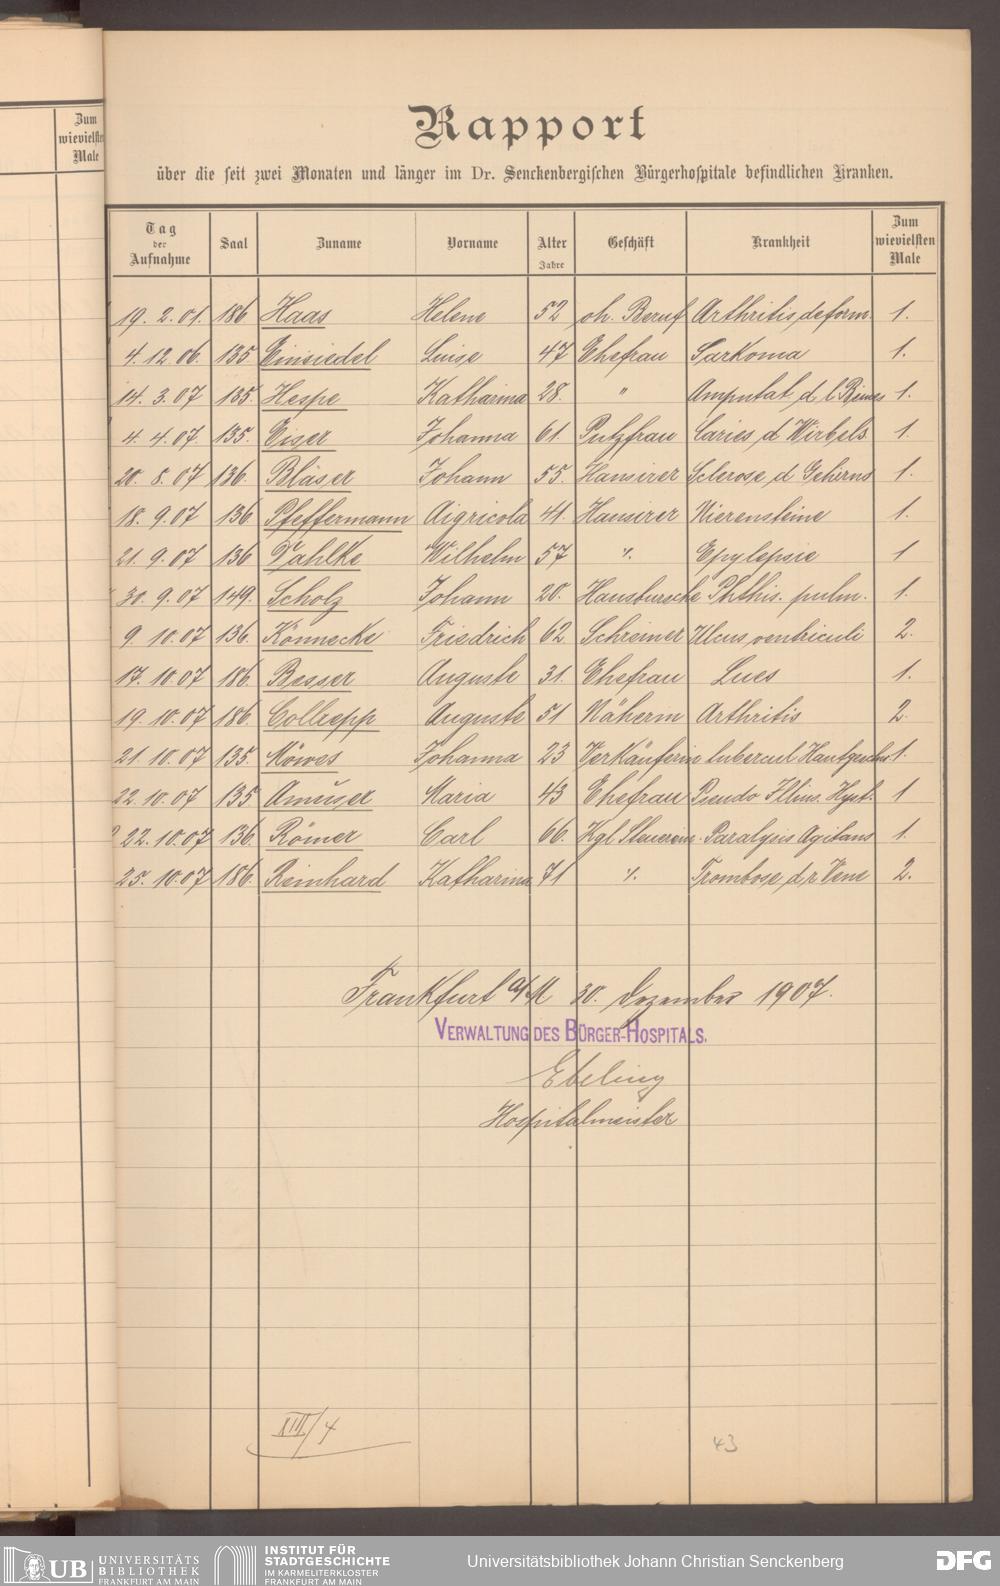 Zum
wievielsten
Male
Rapport
über die seit zwei Monaten und länger im Dr. Senckenbergischen Bürgerhospitale befindlichen Kranken.
Tag der Aufnahme Saal Zuname Vorname Alter Jahre Geschäft Krankheit Zum wievielsten Male
19. 2. 01. 186 Haas Helene 52 oh. Beruf Arthritis deform. 1.
4. 12. 06. 135 Einsiedel Luise 47 Ehefrau Sarkoma 1.
14. 3. 07 135. Hespe Katharina 28. " Amputat. d. l. 1.
4. 4. 07. 135. Eiser Johanna 61. Putzfrau Caries d Wirbels. 1.
20. 8. 07 136. Bläser Johann 55. Hausirer Sclerose d Gehirns 1.
18. 9. 07 136. Pfeffermann Aigricola 41. Hausirer Nierensteine 1.
21. 9. 07 136 Dahlke Wilhelm 57 ". Epylepsie 1
30. 9. 07 149. Scholz Johann 20. Hausbursche Phthis. pulm. 1.
9. 10. 07 136. Könnecke Friedrich 62 Schreiner Ulcus ventriculi 2.
17. 10. 07 186. Besser Auguste 31. Ehefrau Lues 1.
19. 10. 07 186. Colleepp Auguste 51 Näherin Arthritis 2.
21. 10. 07 135. Möwes Johanna 23 Verkäuferin tubercul. 1.
22. 10. 07 135 Maria 43 Ehefrau Pseudo 1
22. 10. 07 136. Römer Carl 66. Kgl. Paralysis Agitans 1.
25. 10. 07 186. Reinhard Katharina 71 ". Trombose d. r. Vene 2.
Frankfurt a/M 30. Dezember 1907.
VERWALTUNG DES BÜRGER-HOSPITALS.
Ebeling
Hospitalmeister
XIII/4
43
UB UNIVERSITÄTS
BIBLIOTHEK
FRANKFURT AM MAIN
INSTITUT FÜR
STADTGESCHICHTE
IM KARMELITERKLOSTER
FRANKFURT AM MAIN
Universitätsbibliothek Johann Christian Senckenberg
DFG